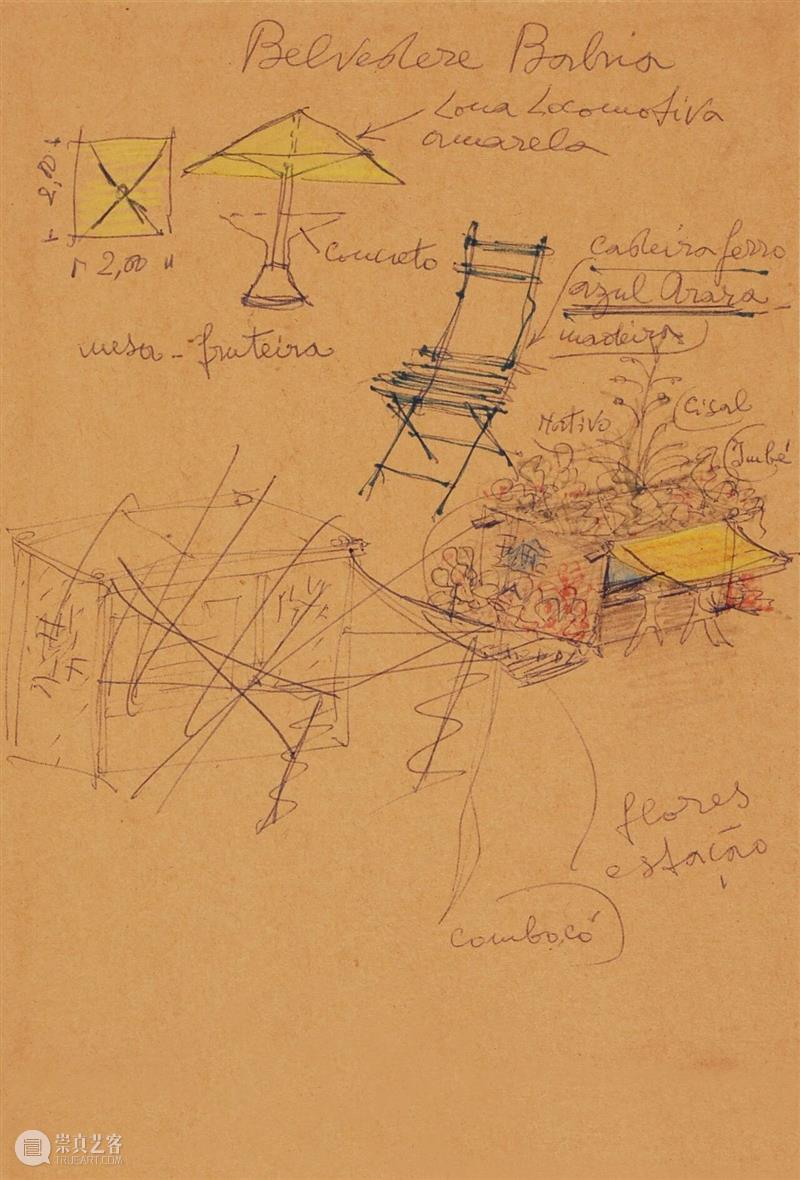 Belvedere Babria
Lona Locomotiva
amarela
2,00
2,00
concreto
mesa-fruteira
cadeira ferro
azul Arara
madeira
Nativo
Cisal
Imbé
flores
estação
combocó
崇真艺客
TRUEART.COM